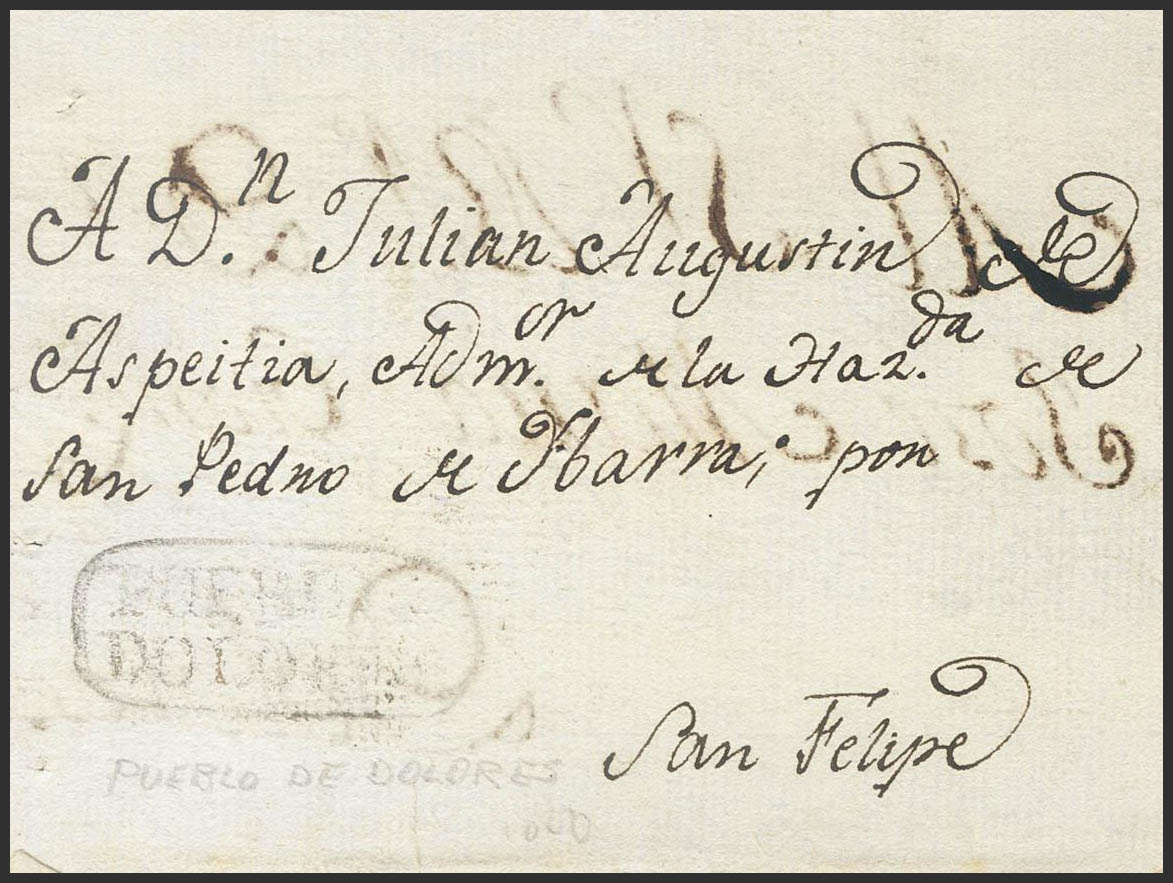 A D.n Julian Augustin de
Aspeitia, Adm.or de la Haz.da de
San Pedro de Ybarra; por
San Felipe
PUEBLO
DOLORES
PUEBLO DE DOLORES